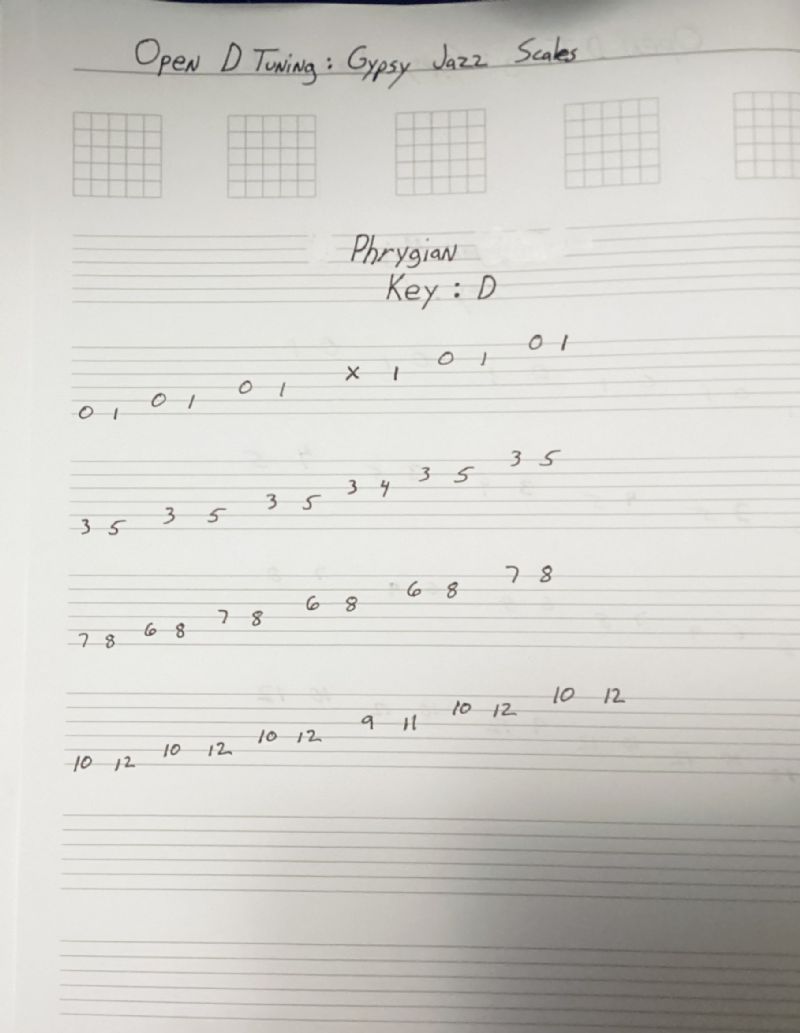 Open D Tuning: Gypsy Jazz Scales
Phrygian
Key: D
0 1 0 1 0 1 x 1 0 1 0 1
3 5 3 5 3 5 3 4 3 5 3 5
7 8 6 8 7 8 6 8 6 8 7 8
10 12 10 12 10 12 9 11 10 12 10 12